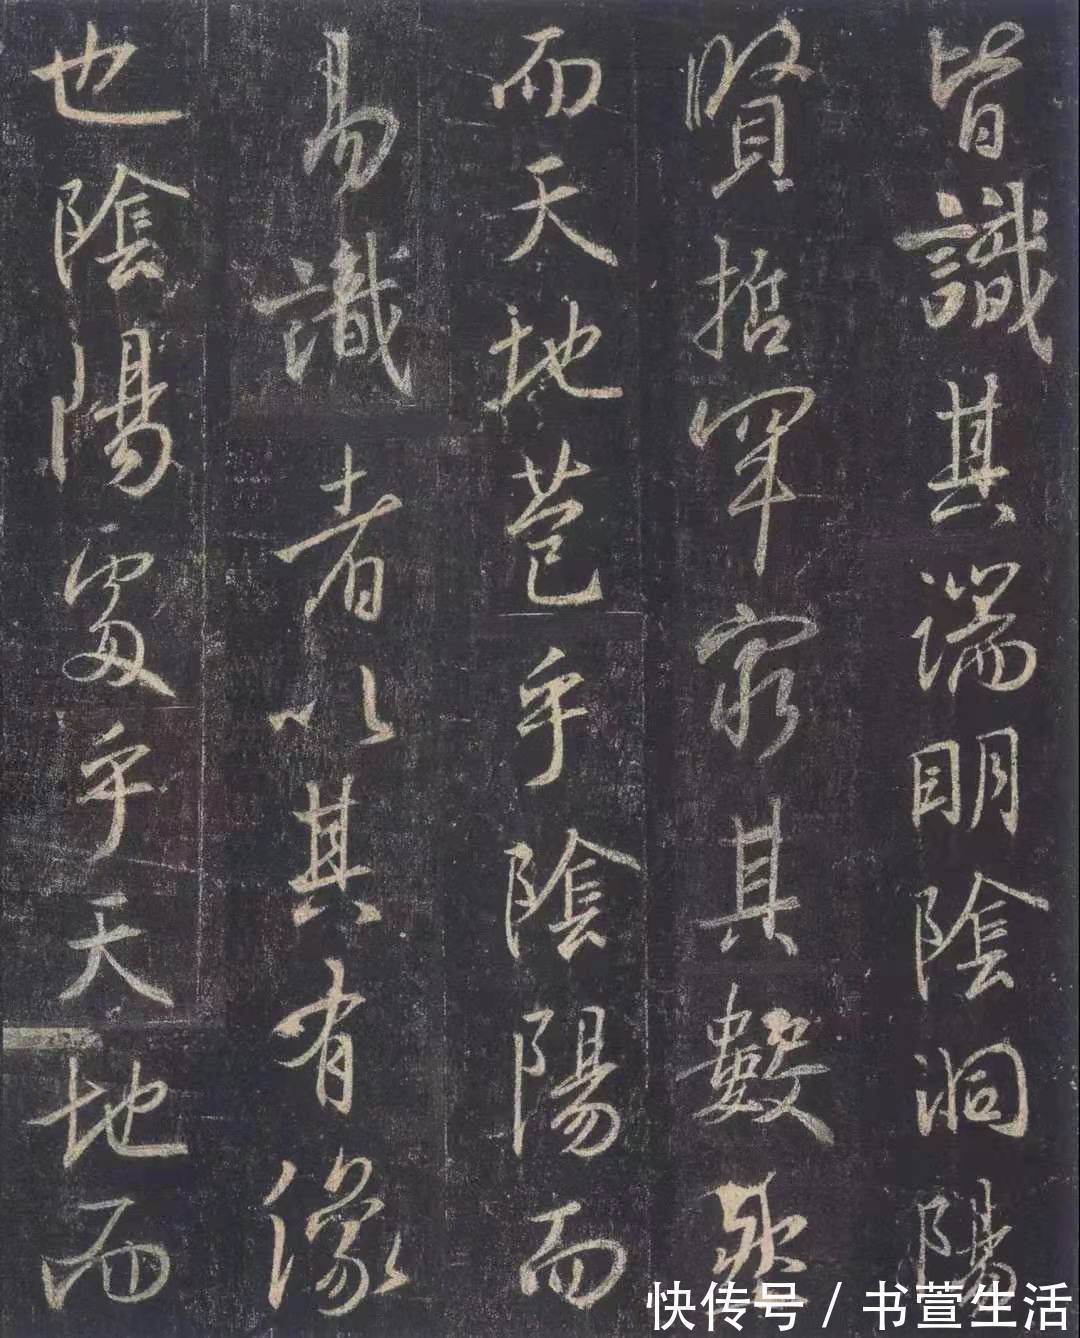 皆識其端明陰洞陽
賢哲罕窮其數然
而天地苞乎陰陽而
易識者以其有像
也陰陽處乎天地而
快传号 / 书萱生活